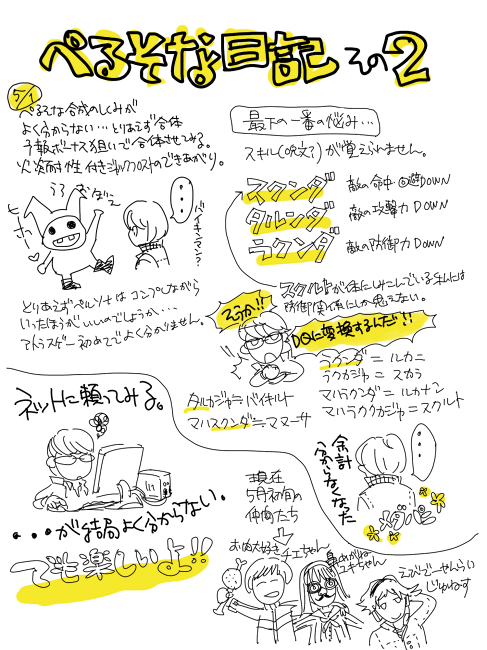 ぺるそな日記 その2
5/1
ぺるそな合成のしくみが
よく分からない…とりあえず合体
予報ボーナス狙いで合体させてみる。
火炎耐性付きジャックフロストのできあがり。
ヒーホー
バイキンマン?
とりあえずペルソナはコンプしながら
いったほうがいいのでしょうか…
アトラスゲー初めてでよく分かりません。
最下の一番の悩み…
スキル(呪文?)が覚えられません。
スクンダ 敵の命中回避DOWN
タルンダ 敵の攻撃力DOWN
ラクンダ 敵の防御力DOWN
スクルトが体にしみこんでいる私には
防御関係にしか思えない。
そうか!!
DQに変換するんだ!!
ラクンダ=ルカニ
ラクカジャ=スカラ
マハラクンダ=ルカナン
マハラクカジャ=スクルト
タルカジャ≒バイキルト
マハスクンダ≒マヌーサ
余計
分からなくなった
メダパニ
ネットに頼ってみる。
...が結局よく分からない。
でも楽しいよ!!
現在
5月初旬の
仲間たち
お肉大好きチエちゃん
鼻めがね
ユキちゃん
じゅねす